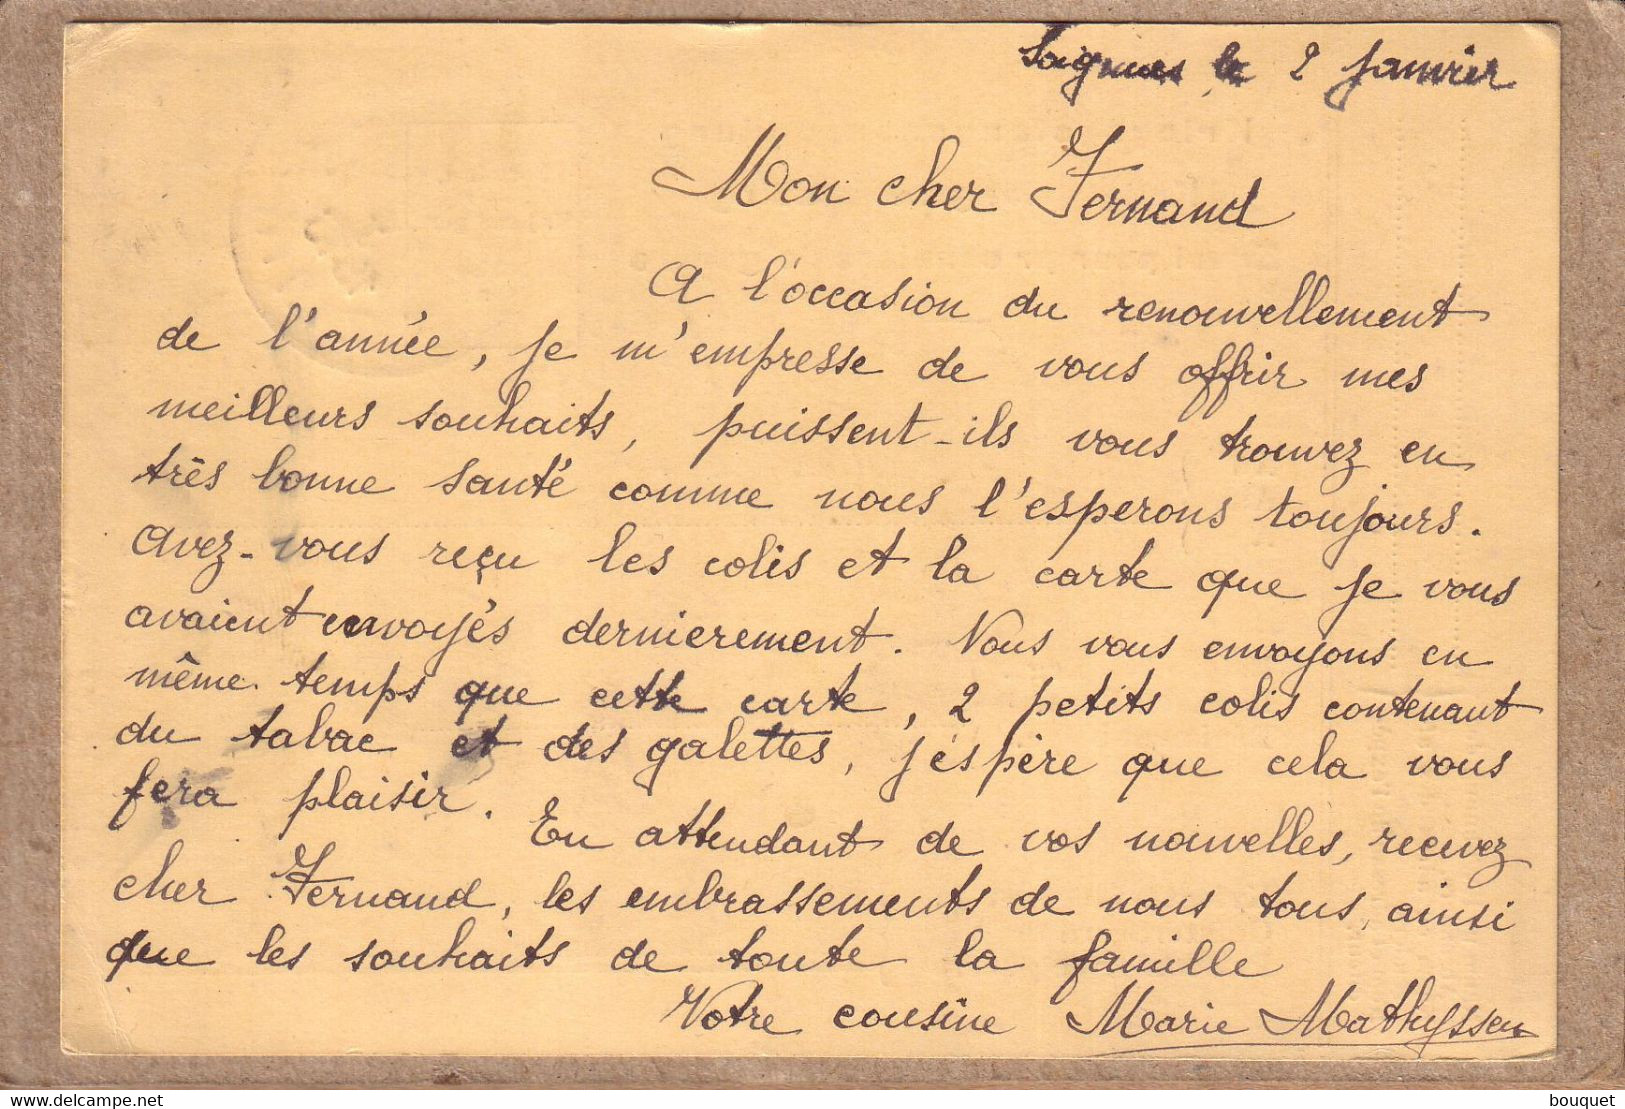 Soignies le 2 janvier
Mon cher Fernand
A l'occasion du renouvellement
de l'année, je m'empresse de vous offrir mes
meilleurs souhaits, puissent-ils vous trouvez en
très bonne santé comme nous l'esperons toujours.
Avez-vous reçu les colis et la carte que je vous
avaient envoyés dernierement. Nous vous envoyons en
même temps que cette carte, 2 petits colis contenant
du tabac et des galettes, j'éspère que cela vous
fera plaisir. En attendant de vos nouvelles, recevez
cher Fernand, les embrassements de nous tous, ainsi
que les souhaits de toute la famille
Votre cousine Marie Mathyssen
delcampe.net
bouquet